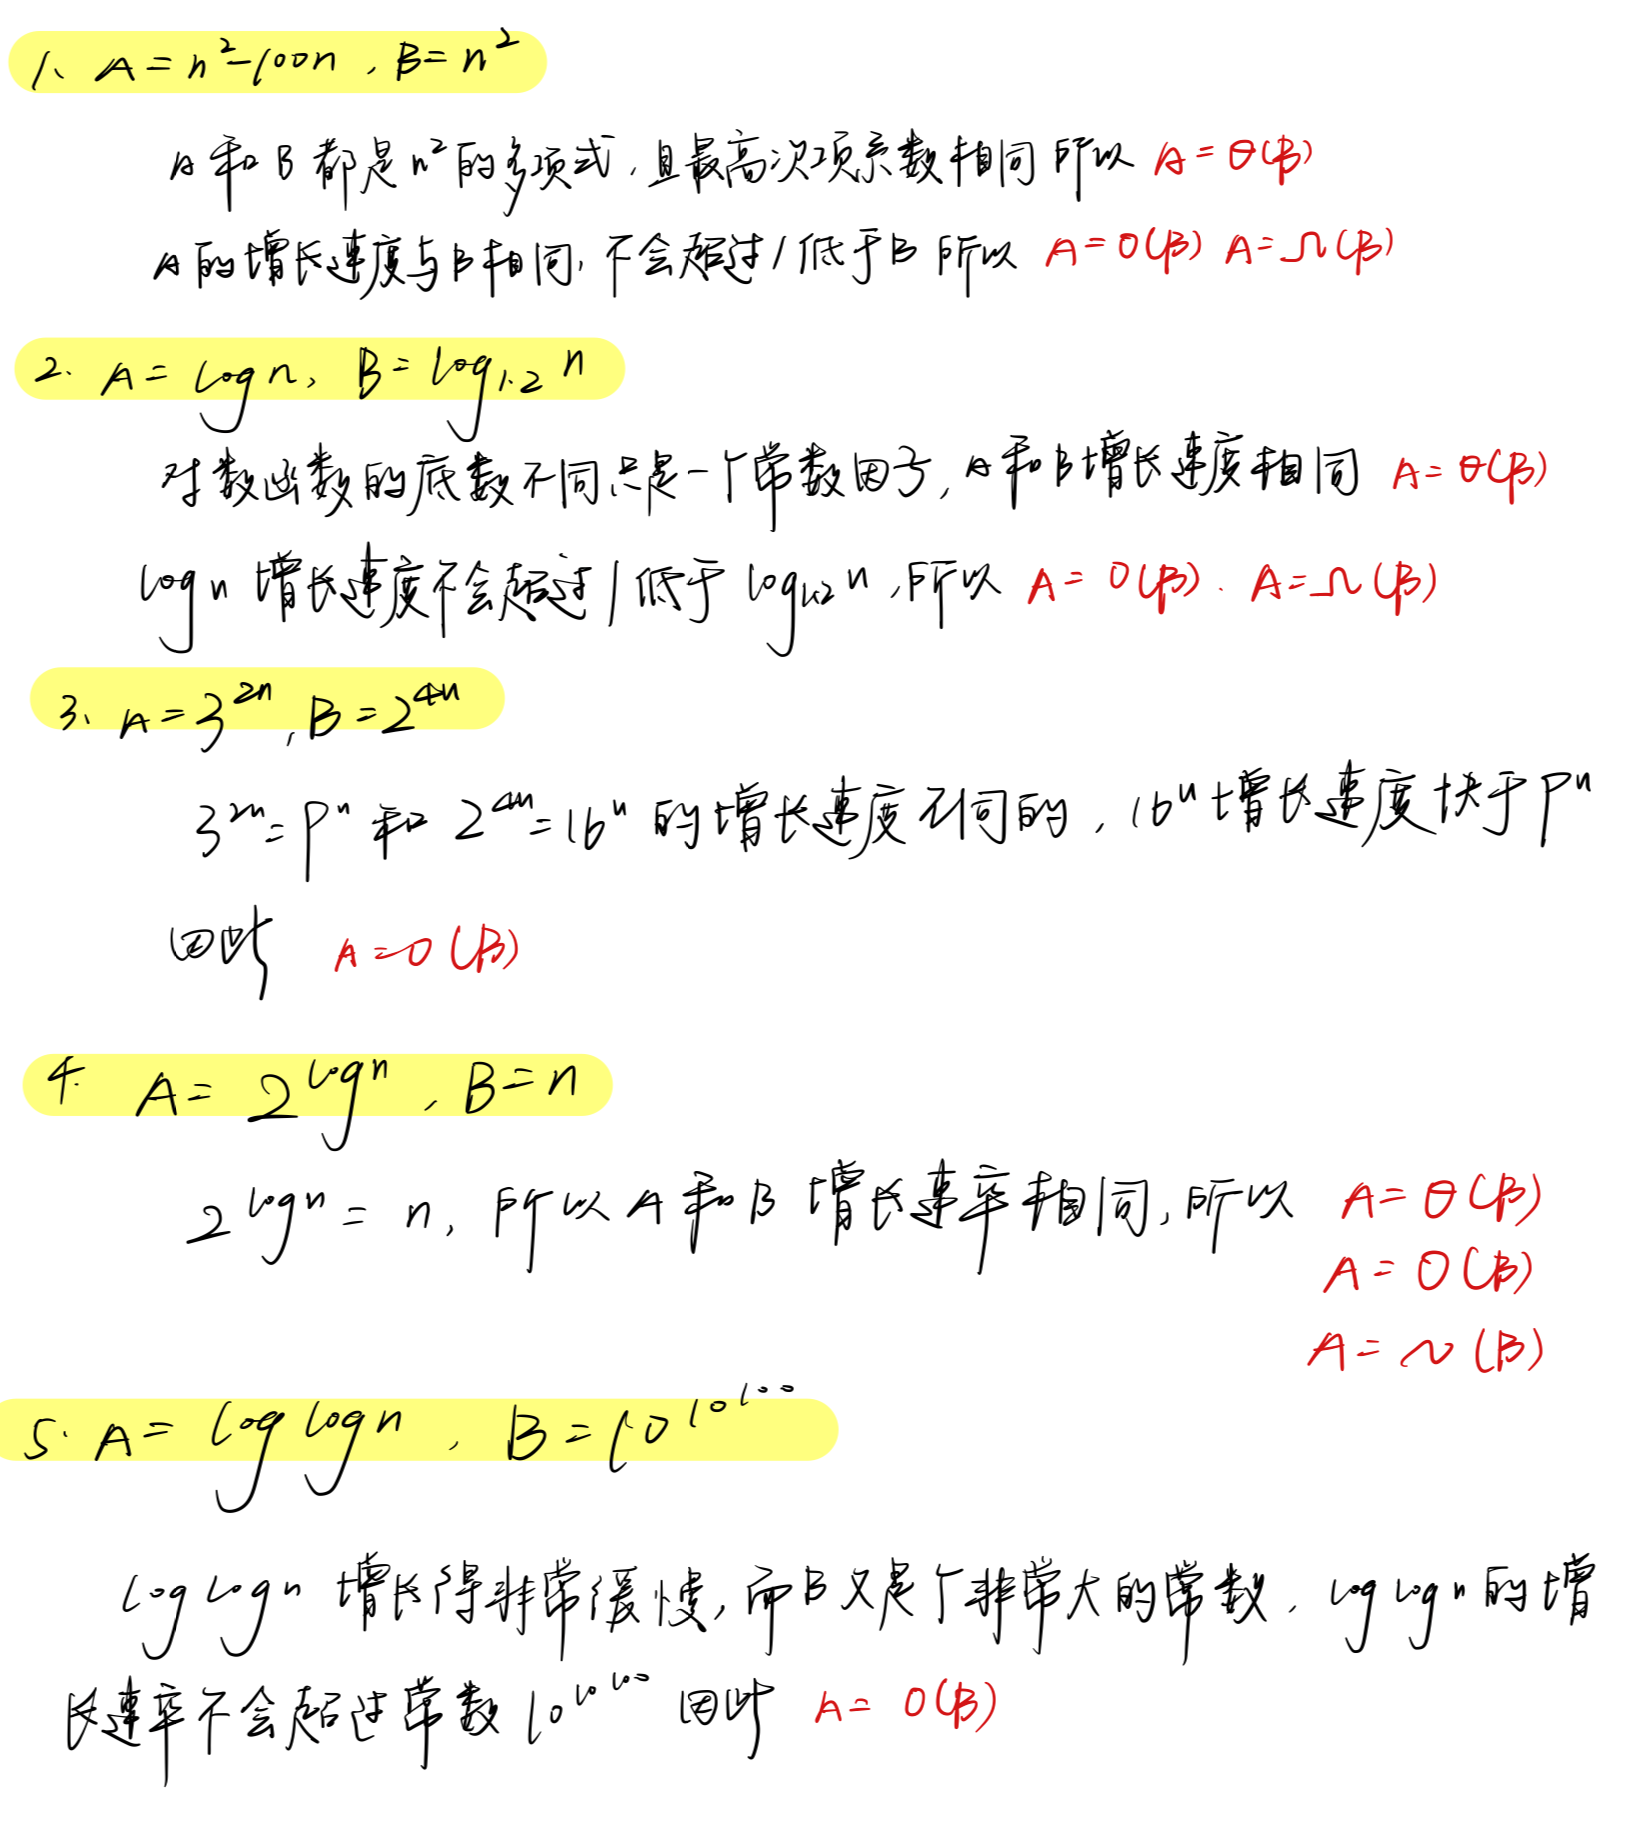 1、A=n²-100n，B=n²
A和B都是n²的多项式，且最高次项系数相同所以 A=Θ(B)
A的增长速度与B相同，不会超过/低于B 所以 A=O(B) A=Ω(B)
2. A=logn，B=log₁.₂ n
对数函数的底数不同只是一个常数因子，A和B增长速度相同 A=Θ(B)
logn 增长速度不会超过/低于 log₁.₂ n，所以 A=O(B). A=Ω(B)
3、A=3²ⁿ，B=2⁴ⁿ
3²ⁿ=9ⁿ 和 2⁴ⁿ=16ⁿ 的增长速度不同的，16ⁿ增长速度快于9ⁿ
因此 A=O(B)
4. A=2^logn，B=n
2^logn=n，所以A和B 增长速率相同，所以 A=Θ(B)
A=O(B)
A=Ω(B)
5. A=loglogn，B=10^10^100
loglogn 增长得非常缓慢，而B又是个非常大的常数，loglogn的增
长速率不会超过常数10^10^100 因此 A=O(B)